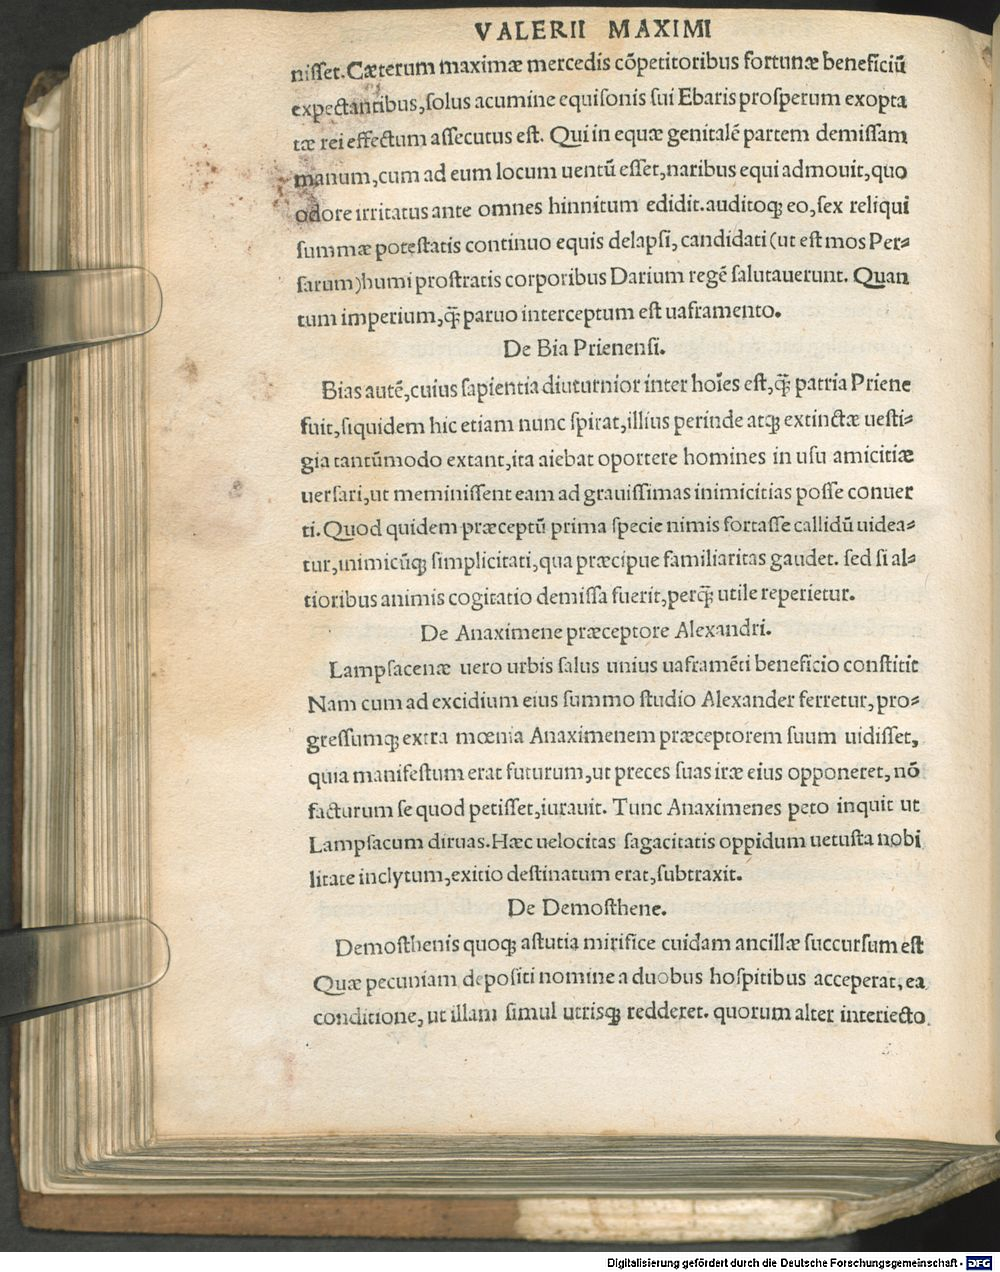 VALERII MAXIMI
nisset. Cæterum maximæ mercedis cõpetitoribus fortunæ beneficiũ
expectantibus, solus acumine equisonis sui Ebaris prosperum exopta
tæ rei effectum assecutus est. Qui in equæ genitalẽ partem demissam
manum, cum ad eum locum uentũ esset, naribus equi admouit, quo
odore irritatus ante omnes hinnitum edidit. auditoqꝫ eo, sex reliqui
summæ potestatis continuo equis delapsi, candidati (ut est mos Per-
sarum) humi prostratis corporibus Darium regẽ salutauerunt. Quan
tum imperium, q̃ꝫ paruo interceptum est uaframento.
De Bia Prienensi.
Bias autẽ, cuius sapientia diuturnior inter hoĩes est, q̃ꝫ patria Priene
fuit, siquidem hic etiam nunc spirat, illius perinde atqꝫ extinctæ uesti-
gia tantũmodo extant, ita aiebat oportere homines in usu amicitiæ
uersari, ut meminissent eam ad grauissimas inimicitias posse conuer
ti. Quod quidem præceptũ prima specie nimis fortasse callidũ uidea-
tur, inimicũqꝫ simplicitati, qua præcipue familiaritas gaudet. sed si al-
tioribus animis cogitatio demissa fuerit, perq̃ꝫ utile reperietur.
De Anaximene præceptore Alexandri.
Lampsacenæ uero urbis salus unius uaframẽti beneficio constitit
Nam cum ad excidium eius summo studio Alexander ferretur, pro-
gressumqꝫ extra mœnia Anaximenem præceptorem suum uidisset,
quia manifestum erat futurum, ut preces suas iræ eius opponeret, nõ
facturum se quod petisset, iurauit. Tunc Anaximenes peto inquit ut
Lampsacum diruas. Hæc uelocitas sagacitatis oppidum uetusta nobi
litate inclytum, exitio destinatum erat, subtraxit.
De Demosthene.
Demosthenis quoqꝫ astutia mirifice cuidam ancillæ succursum est
Quæ pecuniam depositi nomine a duobus hospitibus acceperat, ea
conditione, ut illam simul utrisqꝫ redderet. quorum alter interiecto
Digitalisierung gefördert durch die Deutsche Forschungsgemeinschaft - DFG